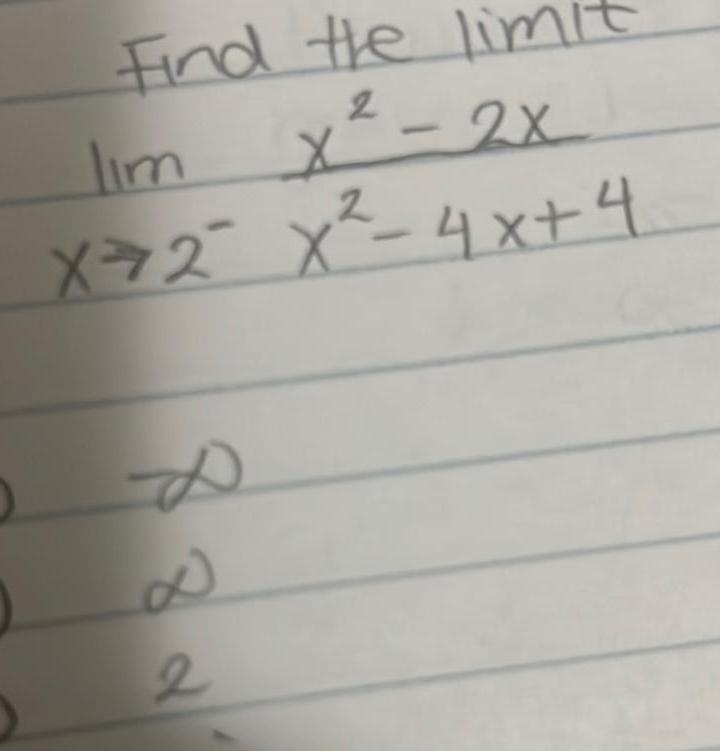 Find the limit
lim x² - 2x
x→2⁻ x² - 4x + 4
) -∞
) ∞
) 2